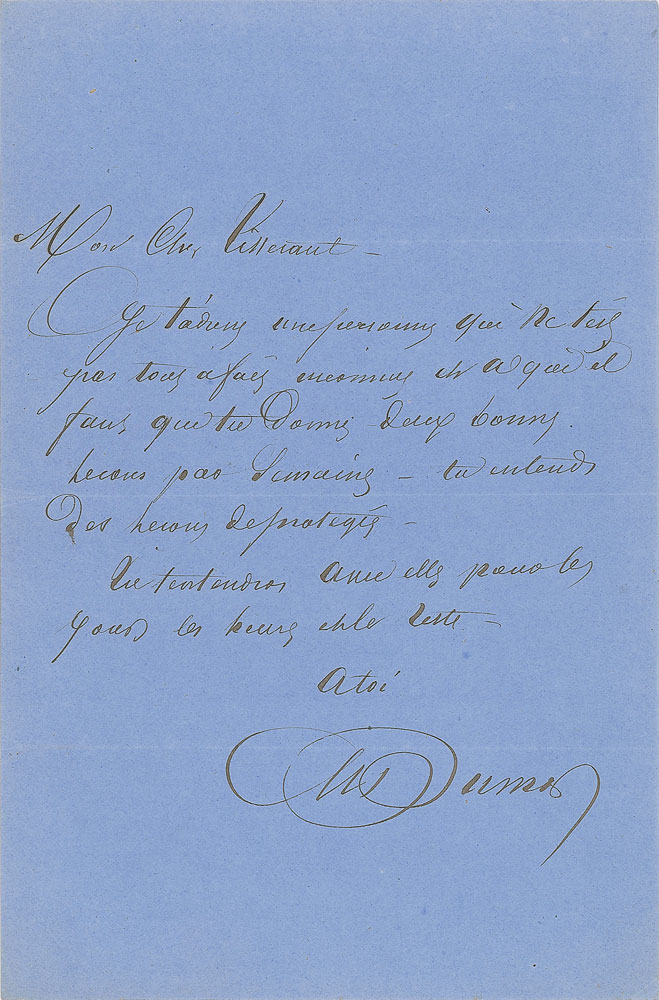 Mon Cher Tisserant –
Je t'adresse une personne qui ne t'est
pas tout à fait inconnue et a qui il
faut que tu donnes deux bonnes
lecons par semaine – tu entends
des lecons de protegée –
Tu t'entendras avec elle pour les
jours les heures et le reste –
A toi
Al Dumas